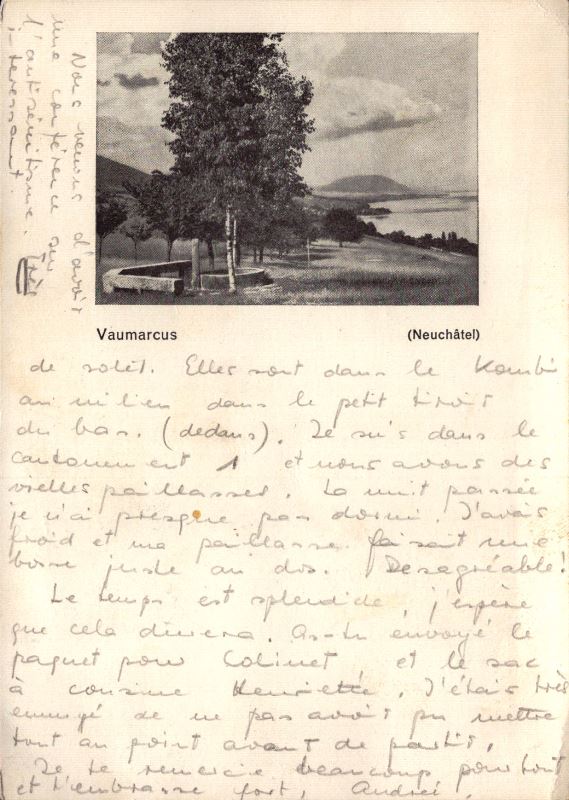 Nous venons d'avoir
une conférence sur
l'antisémitisme. Très
interessant.
Vaumarcus
(Neuchâtel)
de soleil. Elles sont dans le Kombi
au milieu dans le petit tiroir
du bas. (dedans). Je suis dans le
cantonnement 1 et nous avons des
vieilles paillasses. La nuit passée
je n'ai presque pas dormi. J'avais
froid et ma paillasse faisait une
bosse juste au dos. Desagréable!
Le temps est splendide, j'espère
que cela durera. As-tu envoyé le
paquet pour Colinet et le sac
à cousine Henriette. J'étais très
ennuyé de ne pas avoir pu mettre
tout au point avant de partir.
Je te remercie beaucoup pour tout
et t'embrasse fort, André.